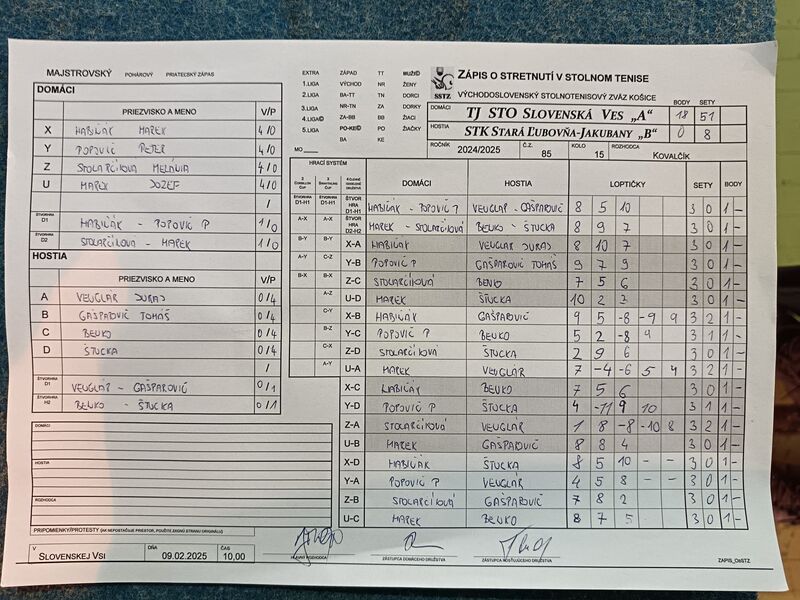 MAJSTROVSKÝ POHÁROVÝ PRIATEĽSKÝ ZÁPAS
DOMÁCI
PRIEZVISKO A MENO V/P
X HABIŇÁK MAREK 4/0
Y POPOVIČ PETER 4/0
Z STOLARČÍKOVÁ MELÁNIA 4/0
U MAREK JOZEF 4/0
/
ŠTVORHRA D1 HABIŇÁK - POPOVIČ P 1/0
ŠTVORHRA D2 STOLARČÍKOVÁ - MAREK 1/0
HOSTIA
PRIEZVISKO A MENO V/P
A VEUGLAR JURAJ 0/4
B GAŠPAROVIČ TOMÁŠ 0/4
C BEŇKO 0/4
D ŠTUCKA 0/4
/
ŠTVORHRA D1 VEUGLAR - GAŠPAROVIČ 0/1
ŠTVORHRA H2 BEŇKO - ŠTUCKA 0/1
DOMÁCI
HOSTIA
ROZHODCA
PRIPOMIENKY/PROTESTY (AK NEPOSTAČUJE PRIESTOR, POUŽITE ZADNÚ STRANU ORIGINÁLU)
V SLOVENSKEJ VSI DŇA 09.02.2025 ČAS 10,00
EXTRA ZÁPAD TT MUŽI©
1.LIGA VÝCHOD NR ŽENY
2.LIGA BA-TT TN DORCI
3.LIGA NR-TN ZA DORKY
4.LIGA© ZA-BB BB ŽIACI
5.LIGA PO-KE© PO ŽIAČKY
BA KE
MO
SSTZ
ZÁPIS O STRETNUTÍ V STOLNOM TENISE
VÝCHODOSLOVENSKÝ STOLNOTENISOVÝ ZVÄZ KOŠICE
BODY SETY
DOMÁCI TJ STO SLOVENSKÁ VES „A" 18 51
HOSTIA STK STARÁ ĽUBOVŇA-JAKUBANY „B" 0 8
ROČNÍK 2024/2025 Č.Z. 85 KOLO 15 ROZHODCA KOVALČÍK
HRACÍ SYSTÉM
DOMÁCI HOSTIA LOPTIČKY SETY BODY
ŠTVORHRA D1-H1 HABIŇÁK - POPOVIČ P VEUGLAR - GAŠPAROVIČ 8 5 10 3 0 1 -
ŠTVORHRA D2-H2 MAREK - STOLARČÍKOVÁ BEŇKO - ŠTUCKA 8 9 7 3 0 1 -
X-A HABIŇÁK VEUGLAR JURAJ 8 10 7 3 0 1 -
Y-B POPOVIČ P GAŠPAROVIČ TOMÁŠ 9 7 9 3 0 1 -
Z-C STOLARČÍKOVÁ BEŇKO 7 5 6 3 0 1 -
U-D MAREK ŠTUCKA 10 2 7 3 0 1 -
X-B HABIŇÁK GAŠPAROVIČ 9 5 -8 -9 9 3 2 1 -
Y-C POPOVIČ P BEŇKO 5 2 -8 9 3 1 1 -
Z-D STOLARČÍKOVÁ ŠTUCKA 2 9 6 3 0 1 -
U-A MAREK VEUGLAR 7 -4 -6 5 9 3 2 1 -
X-C HABIŇÁK BEŇKO 7 5 6 3 0 1 -
Y-D POPOVIČ P ŠTUCKA 4 -11 9 10 3 1 1 -
Z-A STOLARČÍKOVÁ VEUGLÁR 1 8 -8 -10 8 3 2 1 -
U-B MAREK GAŠPAROVIČ 8 8 4 3 0 1 -
X-D HABIŇÁK ŠTUCKA 8 5 10 - - 3 0 1 -
Y-A POPOVIČ P VEUGLÁR 4 5 8 - - 3 0 1 -
Z-B STOLARČÍKOVÁ GAŠPAROVIČ 7 8 2 3 0 1 -
U-C MAREK BEŇKO 8 7 5 3 0 1 -
HLAVNÝ ROZHODCA ZÁSTUPCA DOMÁCEHO DRUŽSTVA ZÁSTUPCA HOSŤUJÚCEHO DRUŽSTVA ZAPIS_OsSTZ